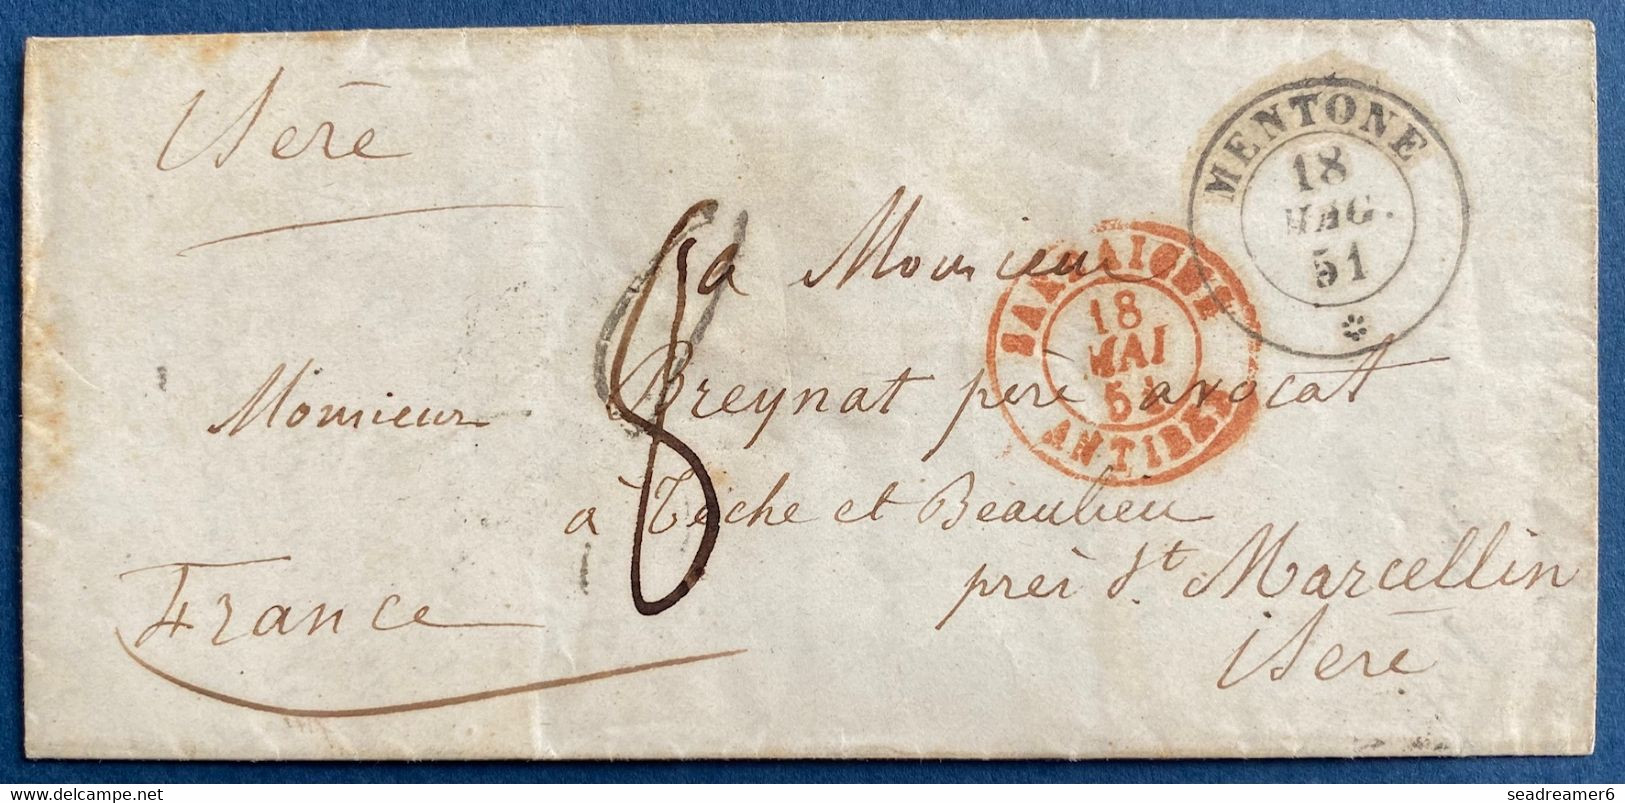 Isère
MENTONE
18
MAG.
51
SARDAIGNE
18
MAI
51
ANTIBES
8
a Monsieur
Monsieur Breynat père avocat
à Têche et Beaulieu
près St. Marcellin
Isère
France
www.delcampe.net
seadreamer6